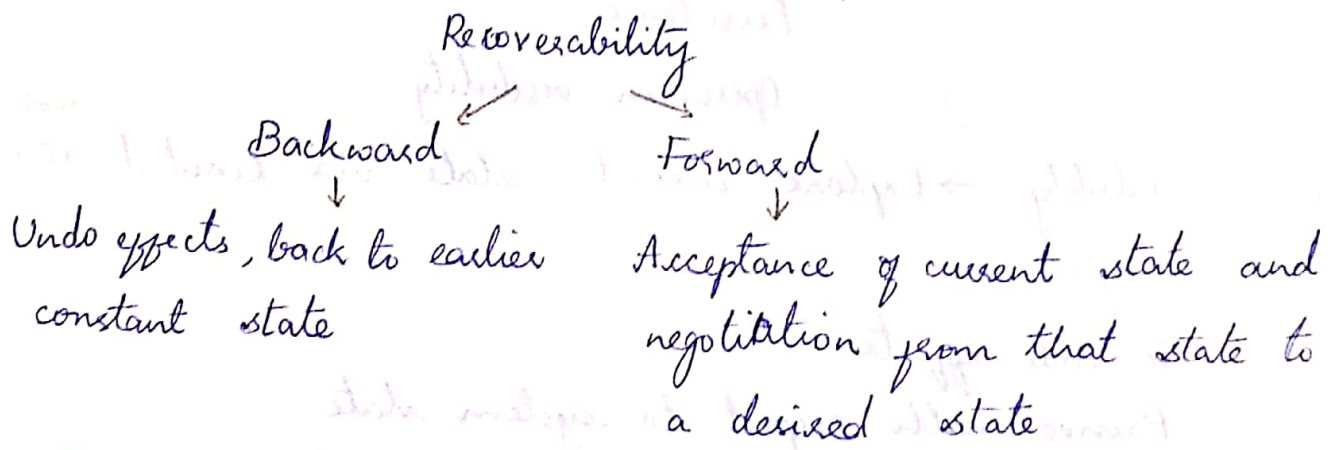 Recoverability
Backward Forward
Undo effects, back to earlier
constant state
Acceptance of current state and
negotiation from that state to
a desired state